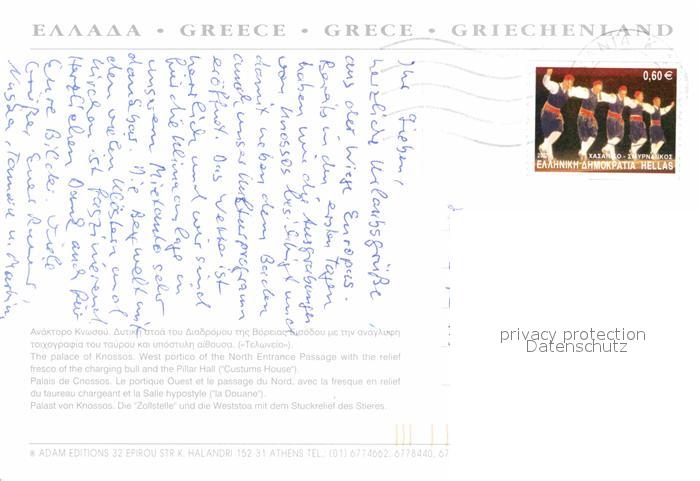 ΕΛΛΑΔΑ • GREECE • GRECE • GRIECHENLAND
Ihr Lieben!
herzliche Urlaubsgrüße
aus der Wiege Europas.
Bereits in den ersten Tagen
haben wir die Ausgrabungen
von Knossos besichtigt und
damit neben dem Baden
auch unser Kulturprogramm
eröffnet. Das Wetter ist
herrlich und wir sind
für die Klimaanlage in
unserem Mietauto sehr
dankbar. Die Bergwelt mit
den vielen Klöstern und
Kirchen ist faszinierend
Herzlichen Dank auch für
Eure Bilder. Viele
Grüße Eure
Tamara u. Martin
0,60 €
ΧΑΣΑΠΙΚΟ - ΣΜΥΡΝΑΙΙΚΟΣ
ΕΛΛΗΝΙΚΗ ΔΗΜΟΚΡΑΤΙΑ HELLAS
privacy protection
Datenschutz
Ανάκτορο Κνωσού. Δυτική στοά του Διαδρόμου της Βόρειας Εισόδου με την ανάγλυφη
τοιχογραφία του ταύρου και υπόστυλη αίθουσα. («Τελωνείο»).
The palace of Knossos. West portico of the North Entrance Passage with the relief
fresco of the charging bull and the Pillar Hall ("Custums House").
Palais de Cnossos. Le portique Ouest et le passage du Nord, avec la fresque en relief
du taureau chargeant et la Salle hypostyle ("la Douane").
Palast von Knossos. Die "Zollstelle" und die Weststoa mit dem Stuckrelief des Stieres.
® ADAM EDITIONS 32 EPIROU STR K. HALANDRI 152 31 ATHENS TEL.: (01) 6774662, 6778440, 67